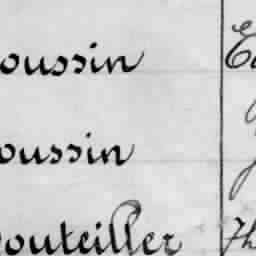 oussin
oussin
outeiller Th